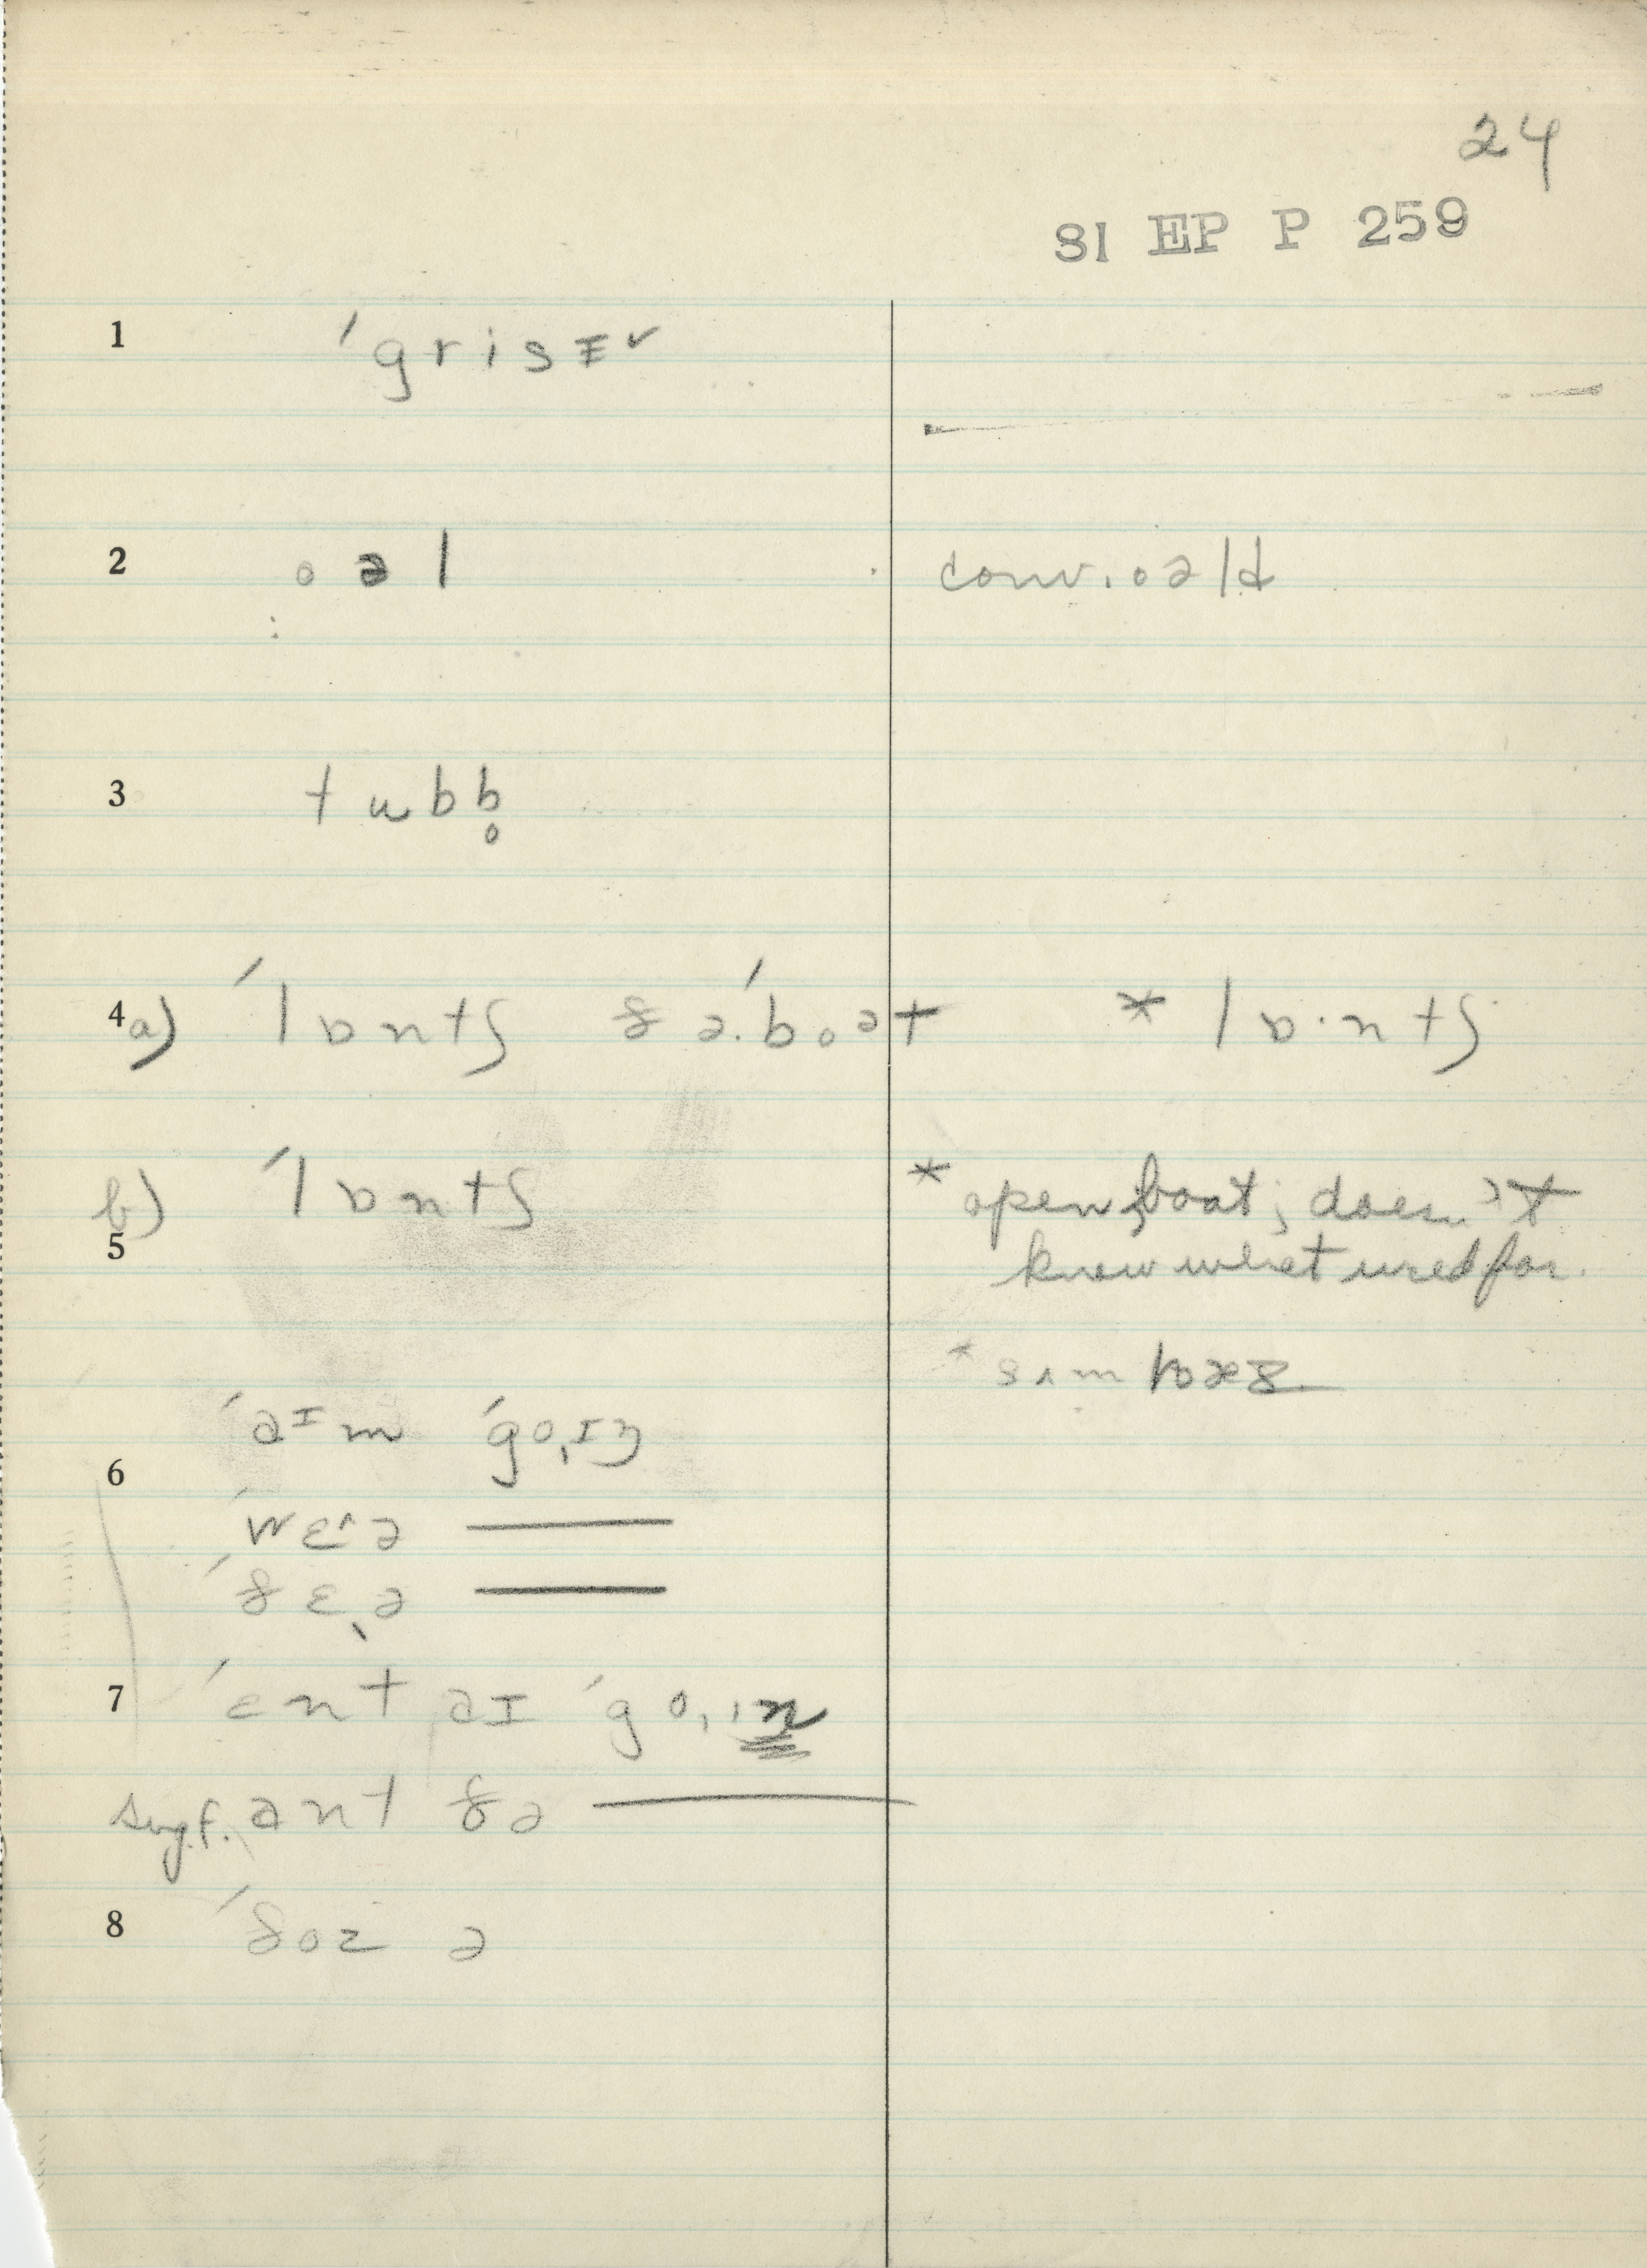 24
SI EP P 259
1 ˈgrisɪ ✓
2 oəl conv. oəld
3 tubb̥
4 a) ˈlɒntʃ ðəˈboət * lɒ·ntʃ
b) ˈlɒntʃ * open boat; doesn't
5 know what used for.
* sʌm
ˈaɪm ˈgo,ɪŋ
6
ˈwɛ^ə ———
ˈðɛˎə ———
7 ˈɛnt aɪ ˈgo,ɪn
sing. f. ant ðə ———
8 ˈðoz ə